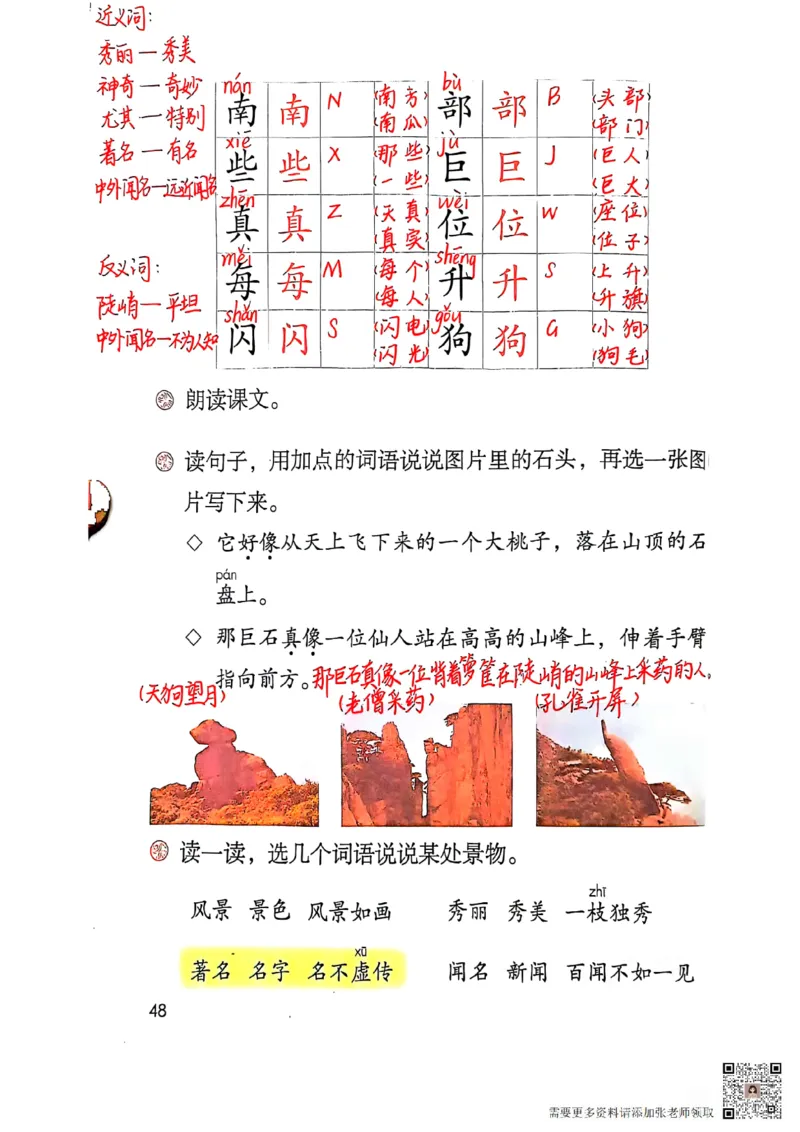 近义词:
秀丽一秀美
神奇一奇妙
尤其一特别
著名一有名
中外闻名一远近闻名
反义词:
陡峭一平坦
中外闻名一不为人知
nán bù
南 南 N (南方) (南瓜) 部 部 B (头部) (部门)
xiē jù
些 些 X (那些) (一些) 巨 巨 J (巨人) (巨大)
zhēn wèi
真 真 Z (天真) (真实) 位 位 W (座位) (位子)
měi shēng
每 每 M (每个) (每人) 升 升 S (上升) (升旗)
shǎn gǒu
闪 闪 S (闪电) (闪光) 狗 狗 G (小狗) (狗毛)
朗读课文。
读句子，用加点的词语说说图片里的石头，再选一张图
片写下来。
◇ 它好像从天上飞下来的一个大桃子，落在山顶的石
pán
盘上。
◇ 那巨石真像一位仙人站在高高的山峰上，伸着手臂
指向前方。那巨石真像一位背着箩筐在陡峭的山峰上采药的人。
(天狗望月) (老僧采药) (孔雀开屏)
读一读，选几个词语说说某处景物。
zhī
风景 景色 风景如画 秀丽 秀美 一枝独秀
xū
著名 名字 名不虚传 闻名 新闻 百闻不如一见
48
需要更多资料请添加张老师领取